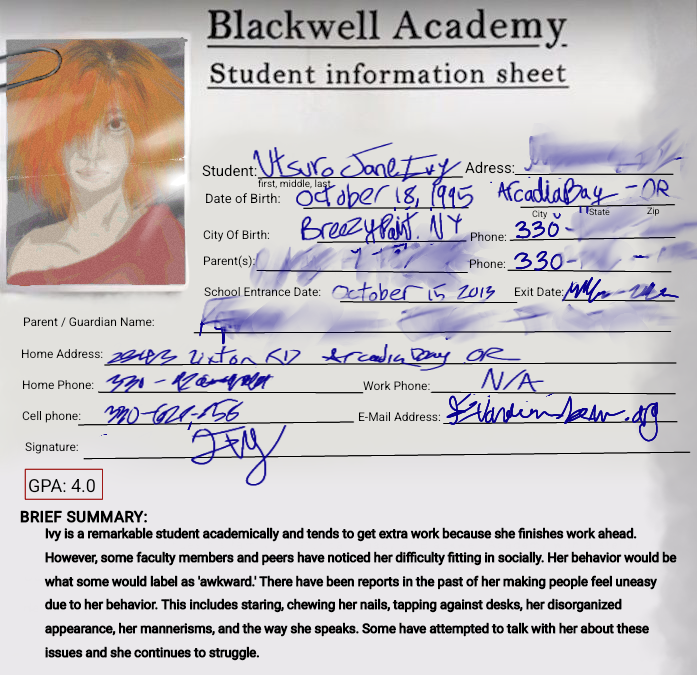 Blackwell Academy
Student information sheet
Student: Utsuro Jane Ivy Adress:
first, middle, last
Date of Birth: October 18, 1995 Arcadia Bay - OR
City State Zip
City Of Birth: Breezy Point. NY Phone: 330-
Parent(s): Phone: 330-
School Entrance Date: October 15 2013 Exit Date:
Parent / Guardian Name:
Home Address: RD Arcadia Bay OR
Home Phone: 330 - Work Phone: N/A
Cell phone: E-Mail Address:
Signature: Ivy
GPA: 4.0
BRIEF SUMMARY:
Ivy is a remarkable student academically and tends to get extra work because she finishes work ahead.
However, some faculty members and peers have noticed her difficulty fitting in socially. Her behavior would be
what some would label as 'awkward.' There have been reports in the past of her making people feel uneasy
due to her behavior. This includes staring, chewing her nails, tapping against desks, her disorganized
appearance, her mannerisms, and the way she speaks. Some have attempted to talk with her about these
issues and she continues to struggle.